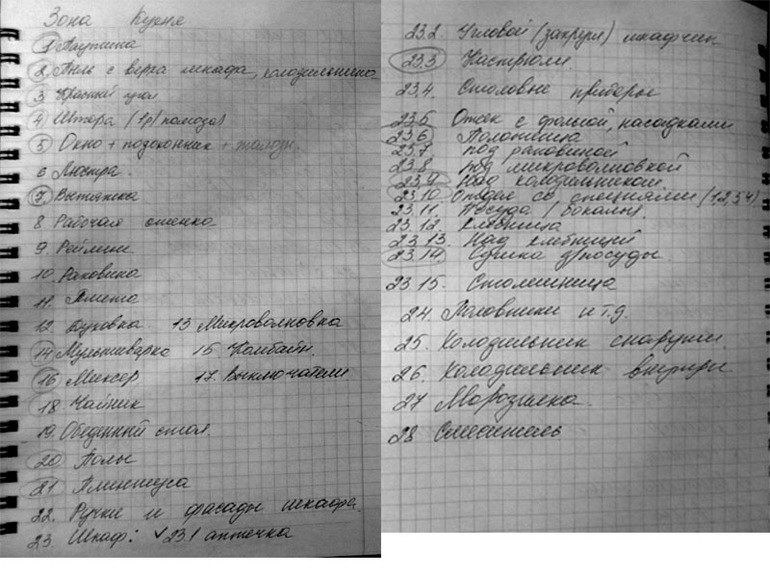 Зона Кухня
1 Паутина
2. Пыль с верха шкафа, холодильника
3 Красный угол
4 Штора (1р/полгода)
5 Окно + подоконник + жалюзи.
6 Люстра.
7 Вытяжка
8 Рабочая стенка
9. Рейлинг
10. Раковина
11. Плита
12. Духовка 13 Микроволновка
14 Мультиварка 15 Комбайн.
16 Миксер 17. Выключатели
18 Чайник
19. Обеденный стол.
20 Полы
21 Плинтуса
22. Ручки и фасады шкафа.
23. Шкаф: ✓23.1 аптечка
23.2. Угловой (закругл) шкафчик
23.3 Кастрюли.
23.4. Столовые приборы
23.5 Отсек с фольгой, насадками
23.6 Полотенца
23.7 под раковиной
23.8 под микроволновкой
23.9 Над холодильником.
23.10. Отдел со специями (1,2,3,4)
23.11. Посуда / бокалы.
23.12. Хлебница
23.13. Над хлебницей
23.14. Сушка д/посуды.
23.15. Столешница
24. Половники и т.д.
25. Холодильник снаружи.
26. Холодильник внутри
27 Морозилка.
28 Смеситель